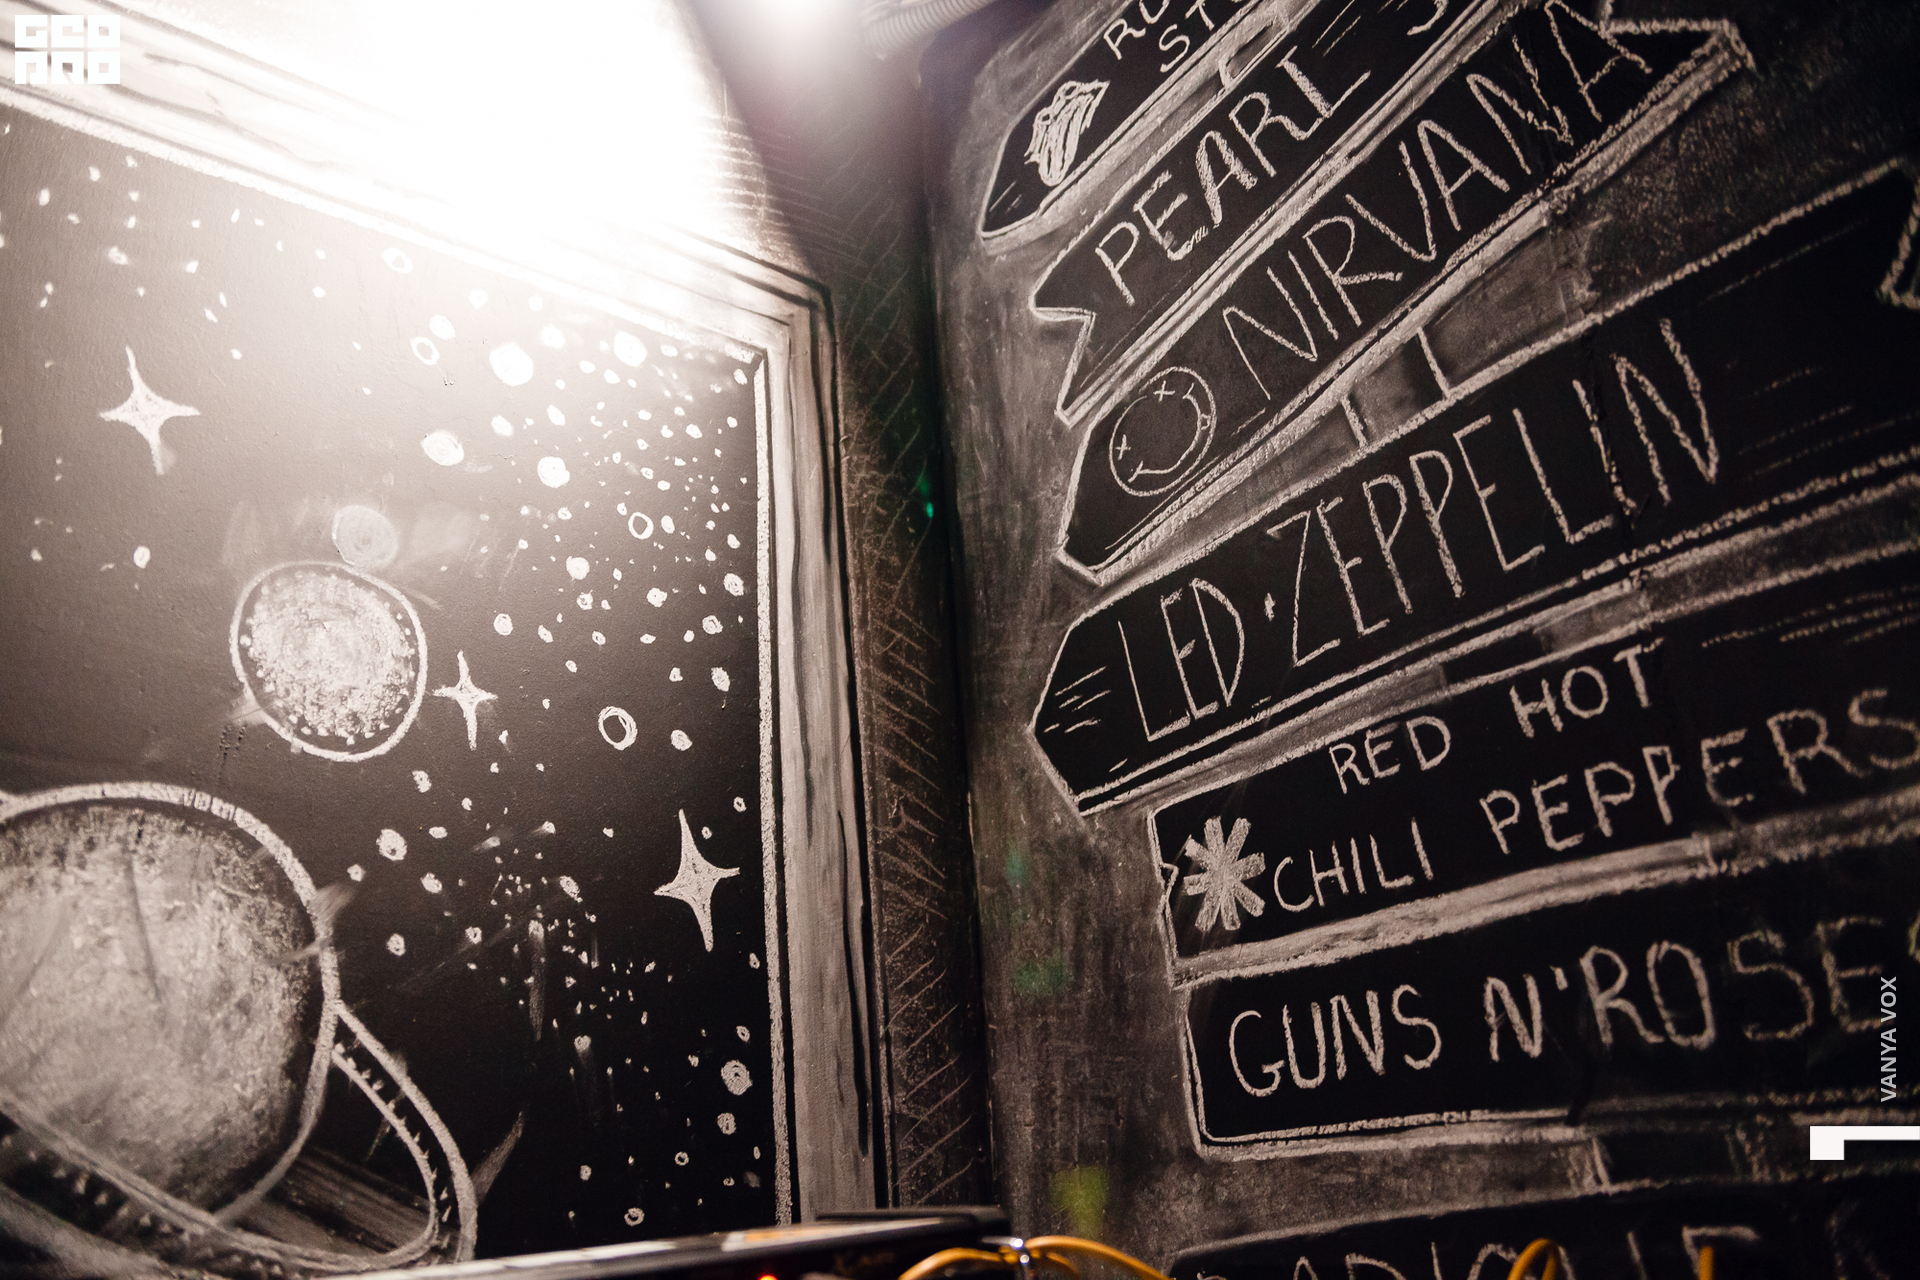 PEARL
NIRVANA
LED·ZEPPELIN
RED HOT
CHILI PEPPERS
GUNS N'ROSES
VANYA VOX